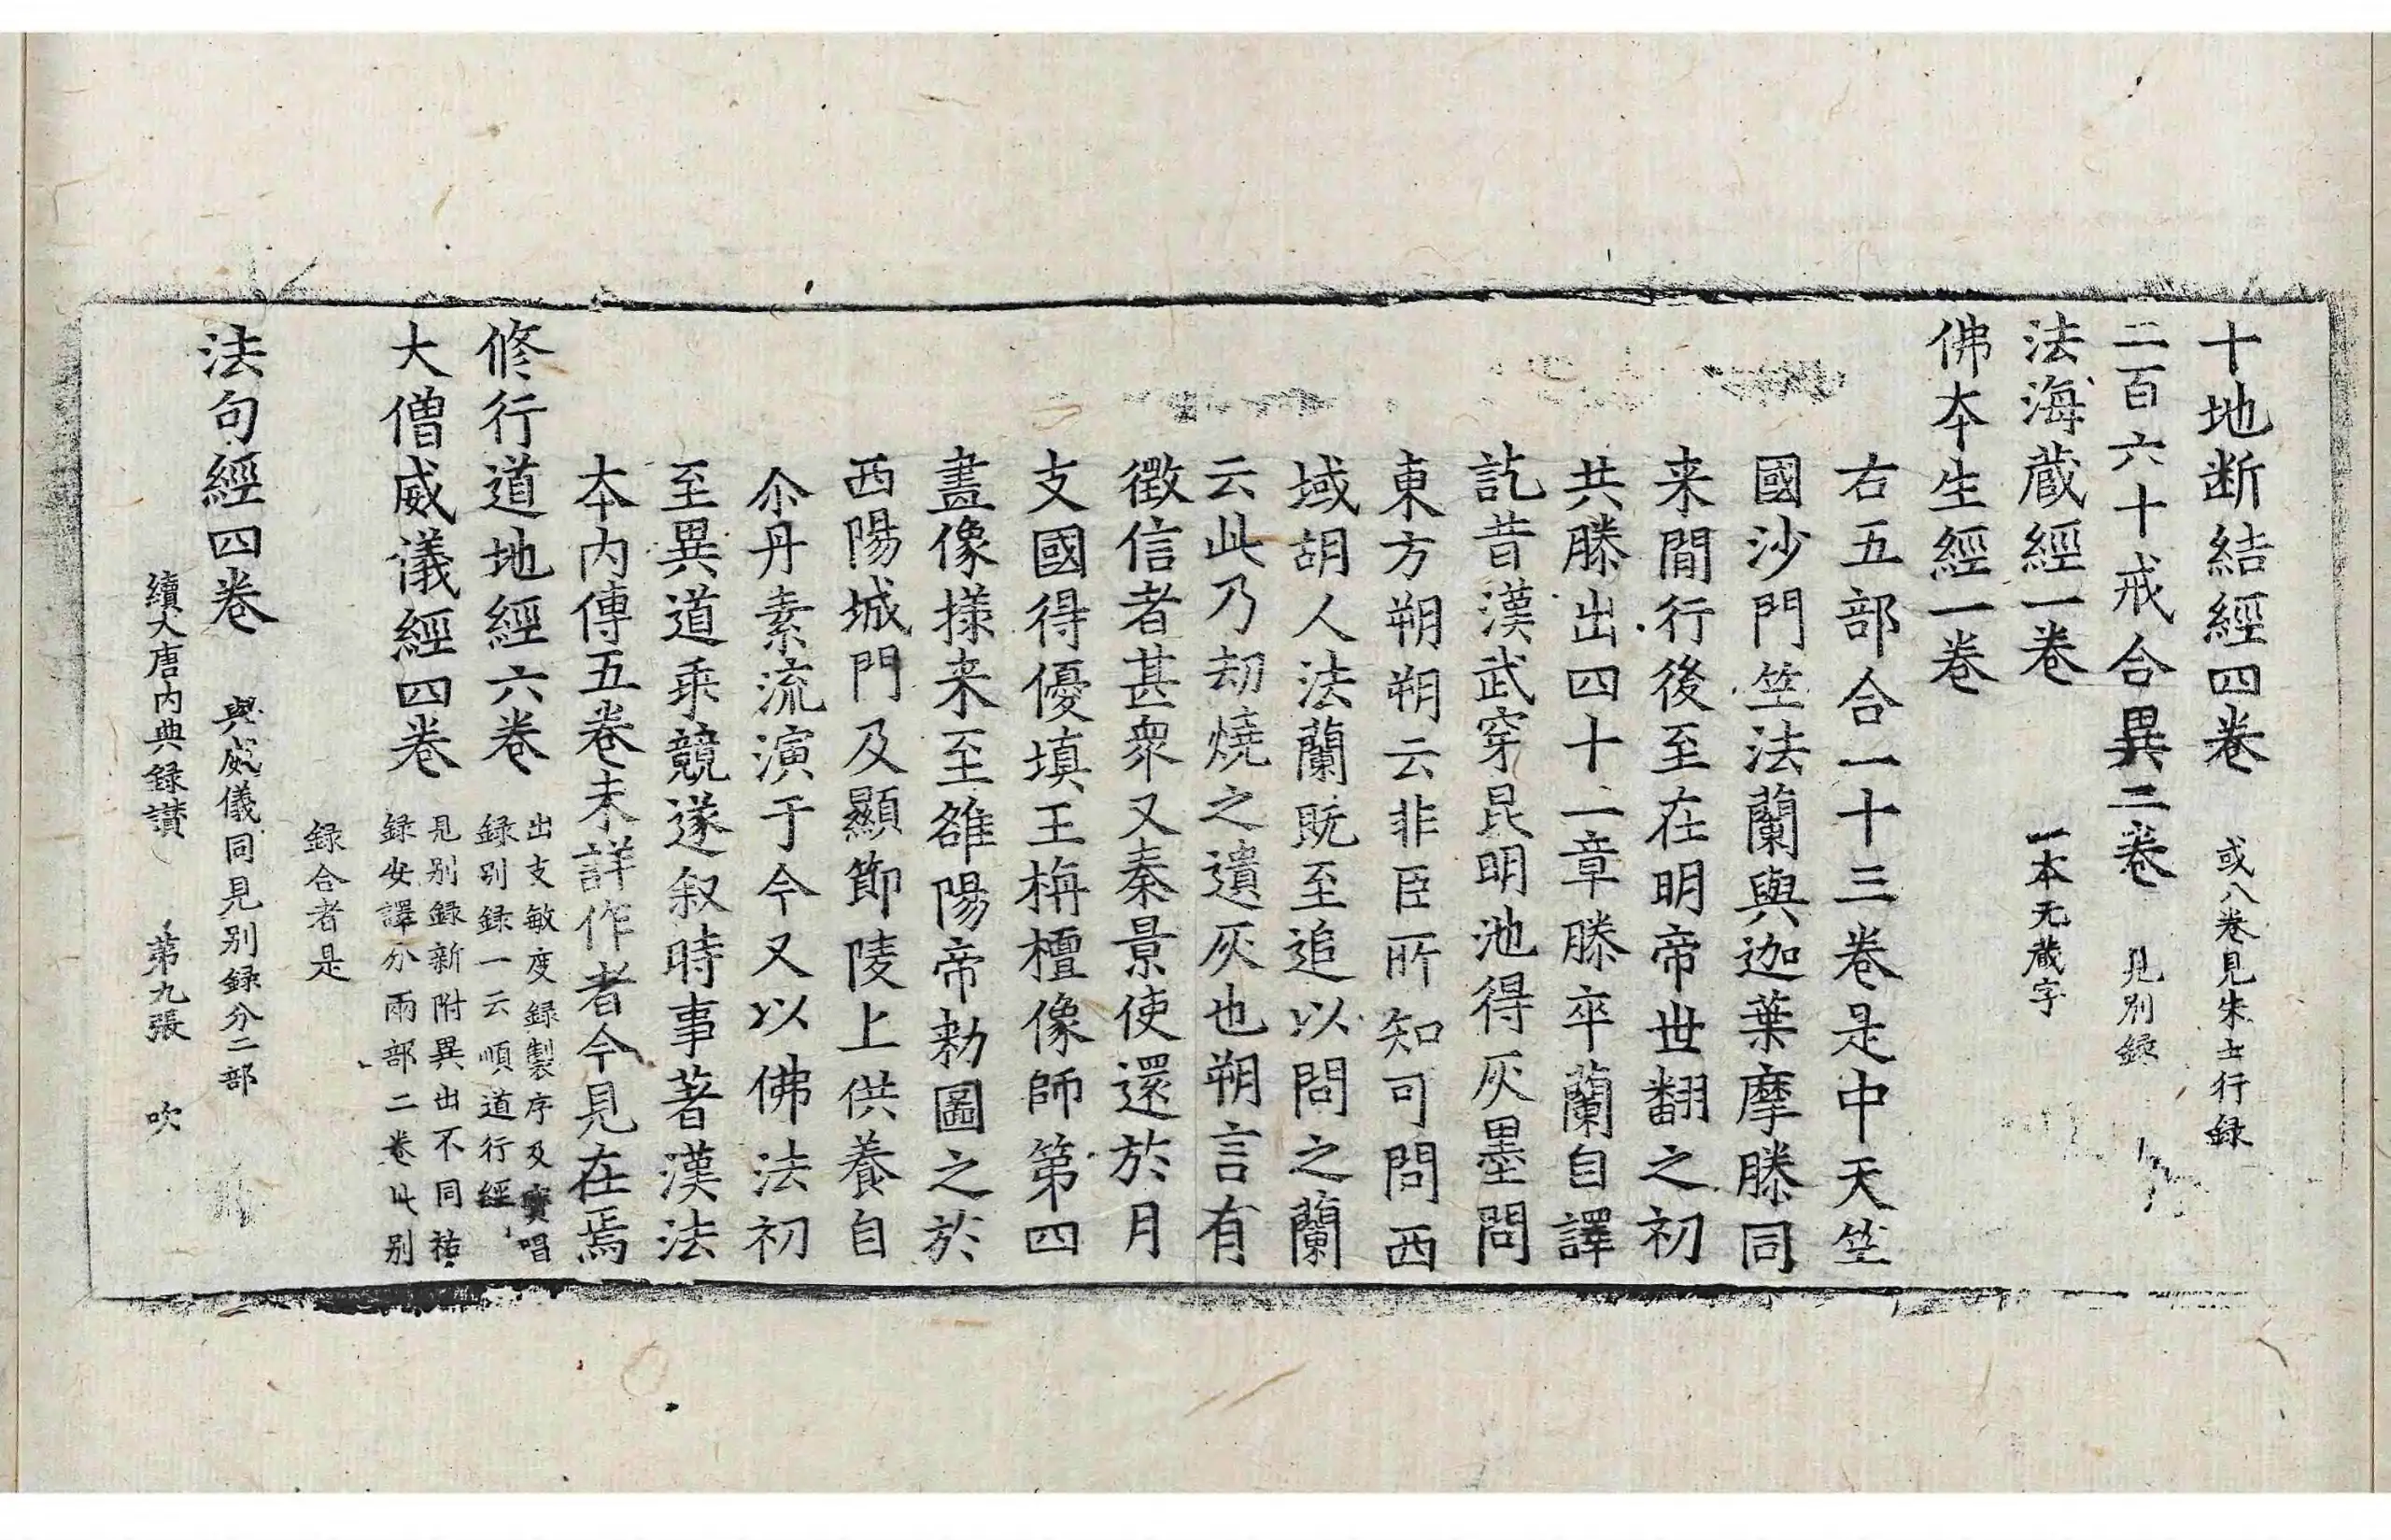 十地断結經四卷 或八卷見朱士行録
二百六十戒合異二卷 見別録
法海蔵經一卷 一本无蔵字
佛夲生經一卷
右五部合一十三卷是中天竺
國沙門竺法蘭與迦葉摩滕同
来間行後至在明帝世翻之初
共滕出四十二章滕卒蘭自譯
訖昔漢武穿昆明池得灰墨問
東方朔朔云非臣所知可問西
域胡人法蘭既至追以問之蘭
云此乃劫燒之遺灰也朔言有
徵信者甚衆又秦景使還於月
支國得優填王栴檀像師第四
畫像様来至雒陽帝勑圖之於
西陽城門及顯節陵上供養自
尒丹素流演于今又以佛法初
至異道乖競遂叙時事著漢法
夲内傳五卷未詳作者今見在焉
修行道地經六卷 出支敏度録製序及寶唱
録別録一云順道行經
大僧威儀經四卷 見別録新附異出不同祐
録安譯分兩部二卷此別
録合者是
法句經四卷 與威儀同見別録分二部
續大唐内典録讃 第九張 吹